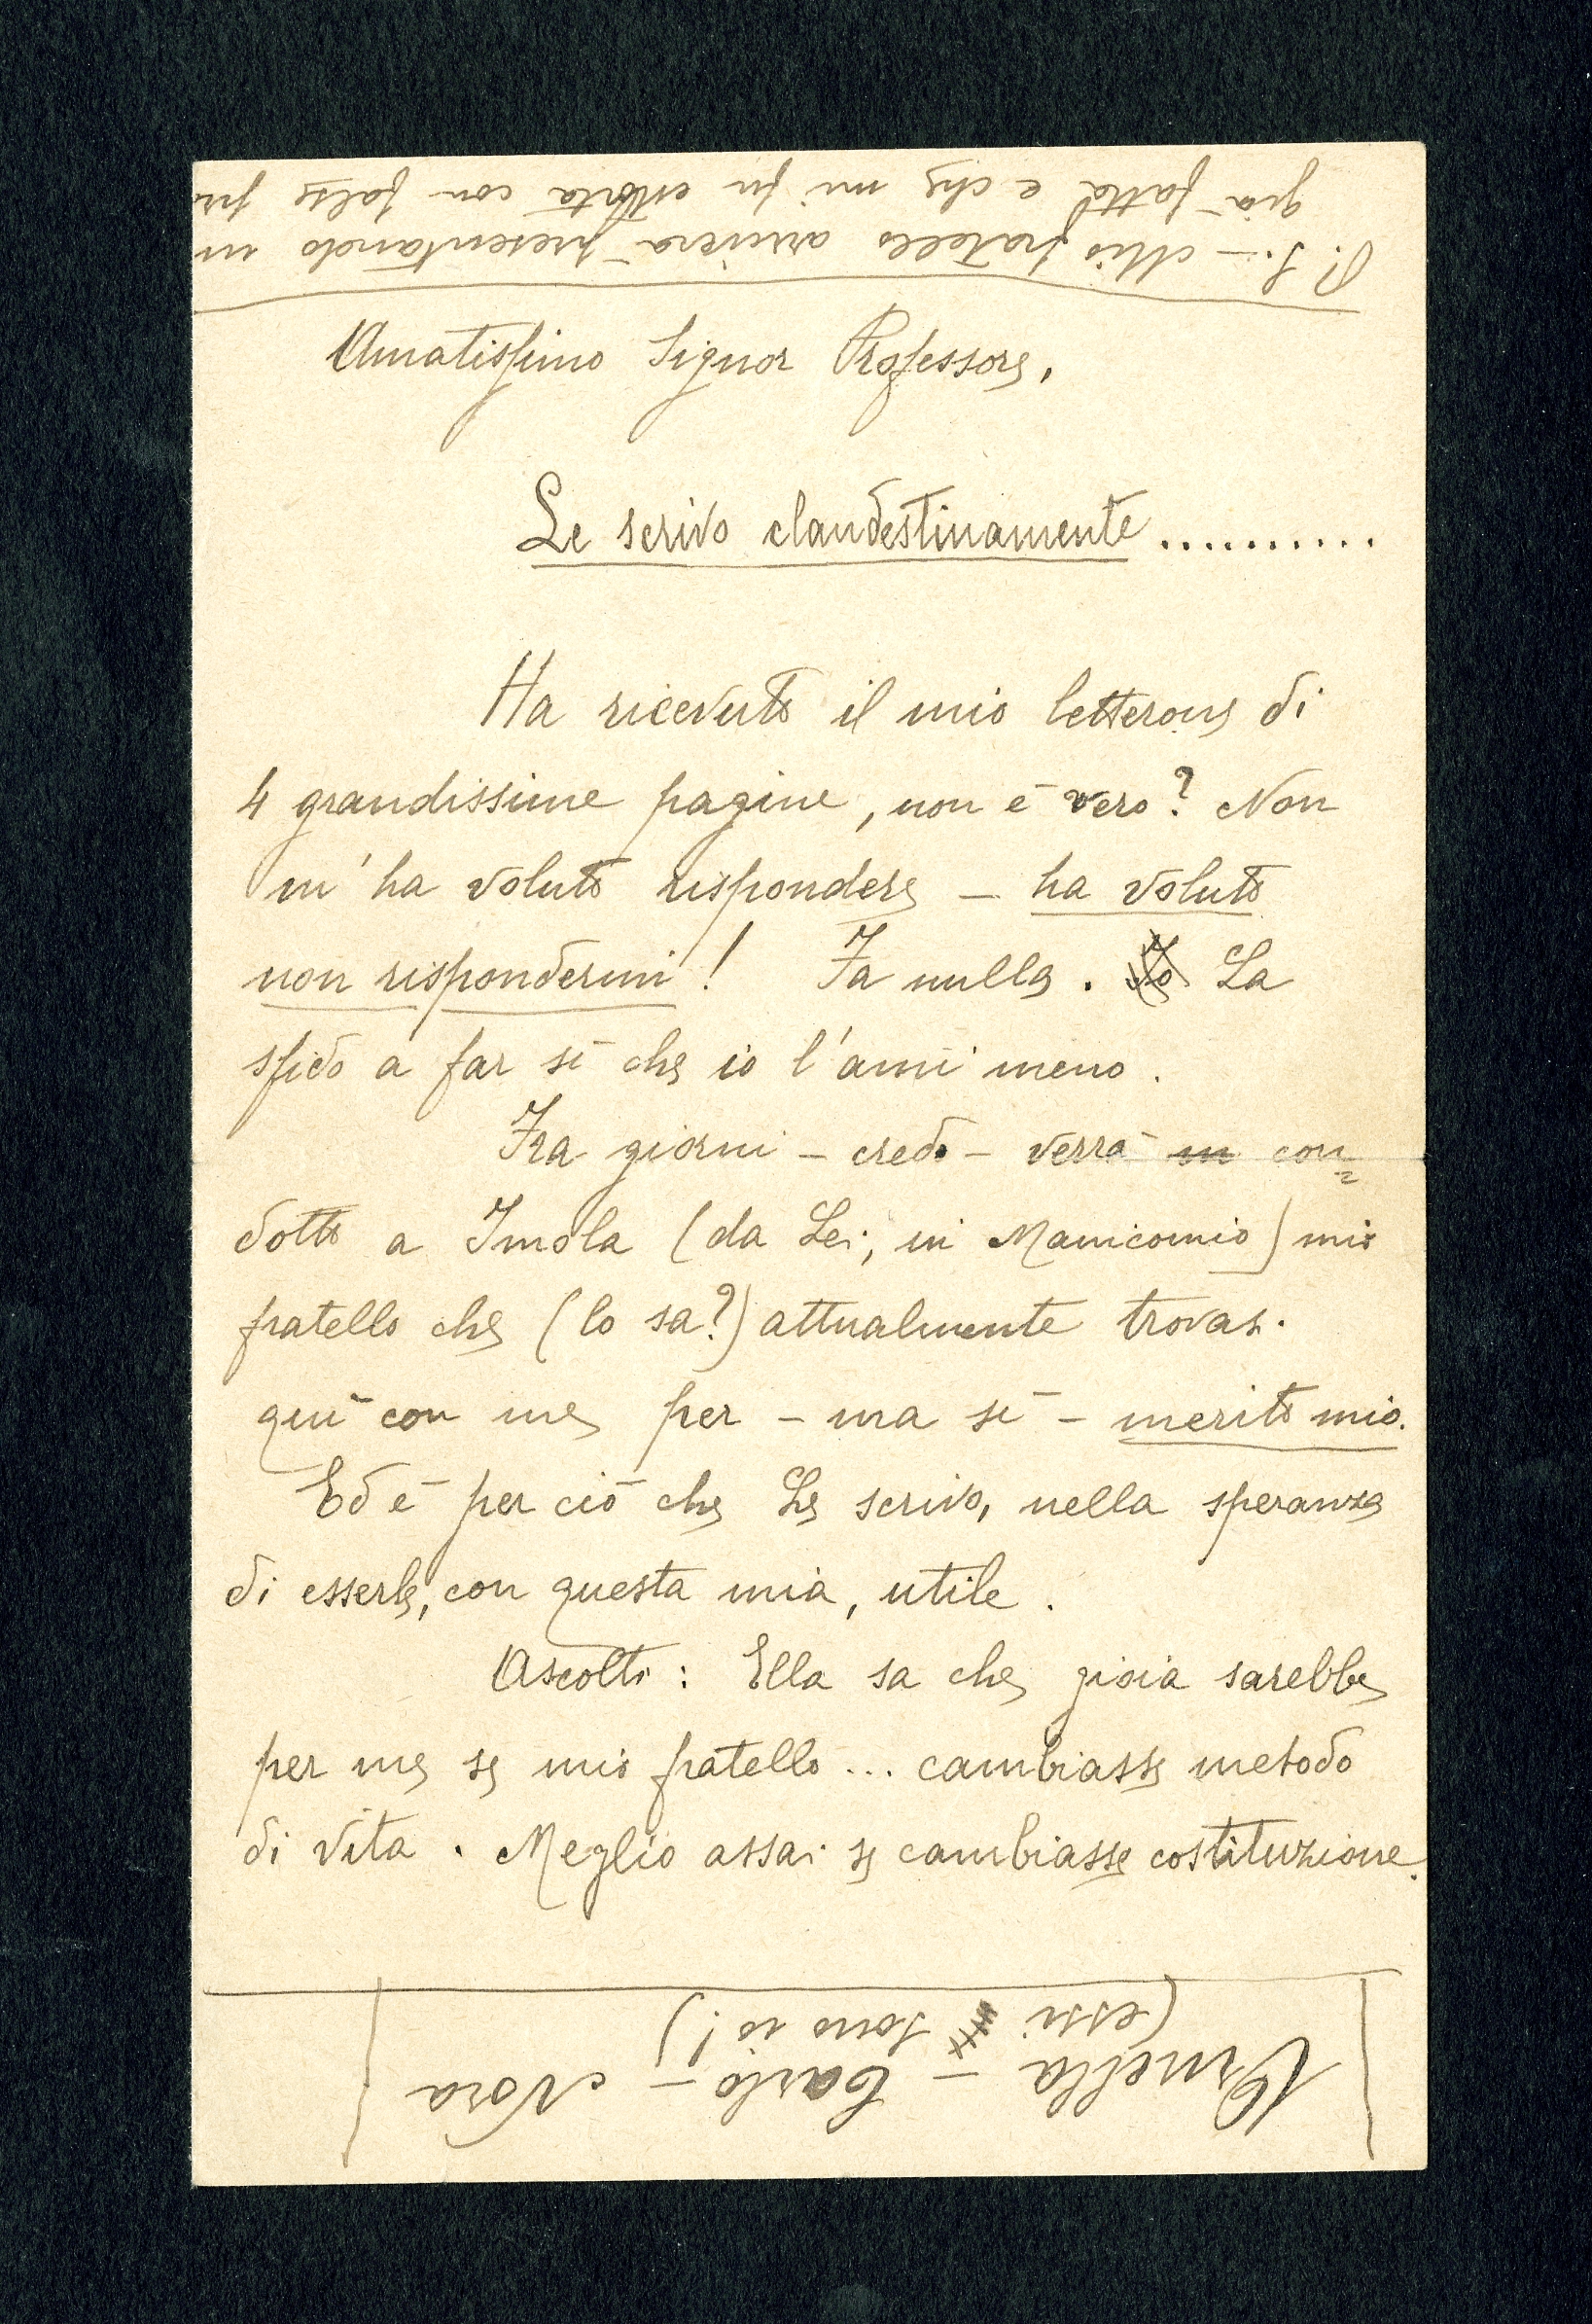 P. S. - Mio fratello arriverà presentando un
già fatta e che mi fu estorta con false
Amatissimo Signor Professore,
Le scrivo clandestinamente..........
Ha ricevuto il mio letterone di
4 grandissime pagine, non è vero? Non
m'ha voluto rispondere - ha voluto
non rispondermi! Fa nulla. Io La
sfido a far sì che io l'ami meno.
Fra giorni - credo - verrà in con=
dotto a Imola (da Lei, in Manicomio) mio
fratello che (lo sa?) attualmente trovasi
quì con me per - ma sì - merito mio.
Ed è per ciò che Le scrivo, nella speranza
di esserle, con questa mia, utile.
Ascolti: Ella sa che gioia sarebbe
per me se mio fratello... cambiasse metodo
di vita. Meglio assai se cambiasse costituzione.
Ornella - Carlo - Nora
(essi sono io!)